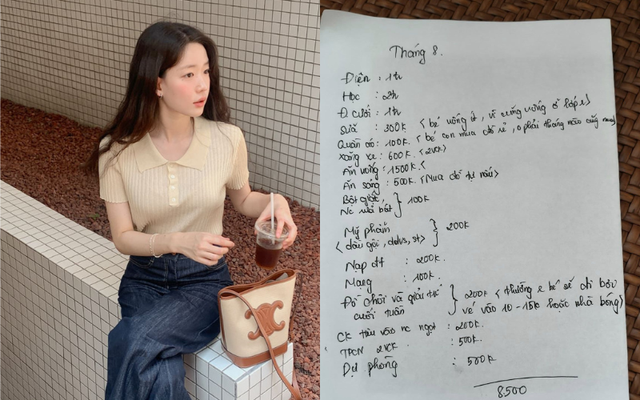 Tháng 8.
Điện : 1tr
Học : 2tr
Đi cưới : 1tr
Sữa : 300k (bé uống ít, vì cũng uống ở lớp)
Quần áo : 100k (bé con mua đồ rẻ, 0 phải tháng nào cũng mua)
Xăng xe : 600k (2vck)
Ăn uống : 1500k
Ăn sáng : 500k (Mua đồ tự nấu)
Bột giặt,
Nc rửa bát } 100k
Mỹ phẩm
(dầu gội, st) } 200k
Nạp đt : 200k.
Mạng : 100k.
Đồ chơi và giải trí
cuối tuần } 200k (thường e bé sẽ đi bơi
vé vào 10 - 15k hoặc nhà bóng)
CK tàu vào nc ngọt : 200k.
TPCN 2VCK : 500k.
Dự phòng : 500k
8500